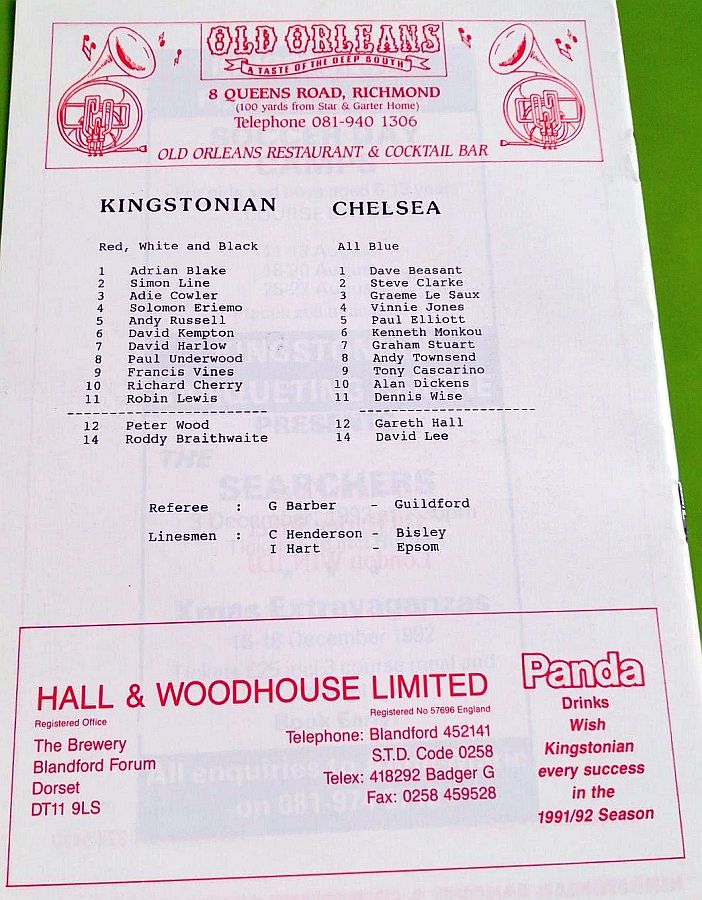 OLD ORLEANS
A TASTE OF THE DEEP SOUTH
8 QUEENS ROAD, RICHMOND
(100 yards from Star & Garter Home)
Telephone 081-940 1306
OLD ORLEANS RESTAURANT & COCKTAIL BAR
KINGSTONIAN CHELSEA
Red, White and Black All Blue
1 Adrian Blake 1 Dave Beasant
2 Simon Line 2 Steve Clarke
3 Adie Cowler 3 Graeme Le Saux
4 Solomon Eriemo 4 Vinnie Jones
5 Andy Russell 5 Paul Elliott
6 David Kempton 6 Kenneth Monkou
7 David Harlow 7 Graham Stuart
8 Paul Underwood 8 Andy Townsend
9 Francis Vines 9 Tony Cascarino
10 Richard Cherry 10 Alan Dickens
11 Robin Lewis 11 Dennis Wise
12 Peter Wood 12 Gareth Hall
14 Roddy Braithwaite 14 David Lee
Referee : G Barber - Guildford
Linesmen : C Henderson - Bisley
I Hart - Epsom
HALL & WOODHOUSE LIMITED
Registered Office
Registered No 57696 England
The Brewery
Blandford Forum
Dorset
DT11 9LS
Telephone: Blandford 452141
S.T.D. Code 0258
Telex: 418292 Badger G
Fax: 0258 459528
Panda
Drinks
Wish
Kingstonian
every success
in the
1991/92 Season
THE
SEARCHERS
Xmas Extravaganzas